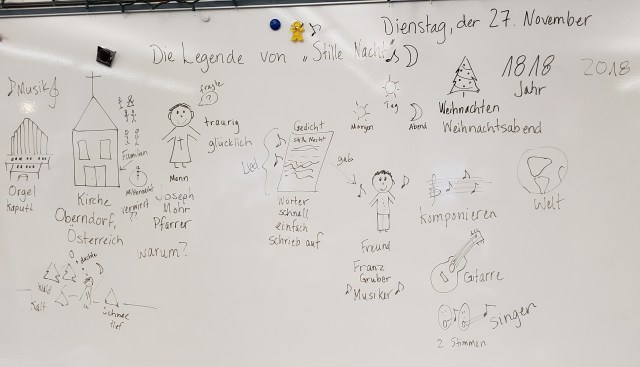 Dienstag, der 27. November
Die Legende von „Stille Nacht"
1818
Jahr
2018
Musik
fragte
?
traurig
glücklich
Familien
Mitternacht
Mann
Joseph
Mohr
Pfarrer
warum?
Orgel
Kaputt
Kirche
Oberndorf,
Österreich
dachte
Wald
Kalt
Schnee
tief
Gedicht
Stille Nacht
Lied
Wörter
schnell
einfach
schrieb auf
Morgen
Tag
Abend
Weihnachten
Weihnachtsabend
gab
Freund
Franz
Gruber
Musiker
Komponieren
Welt
Gitarre
Singen
2 Stimmen